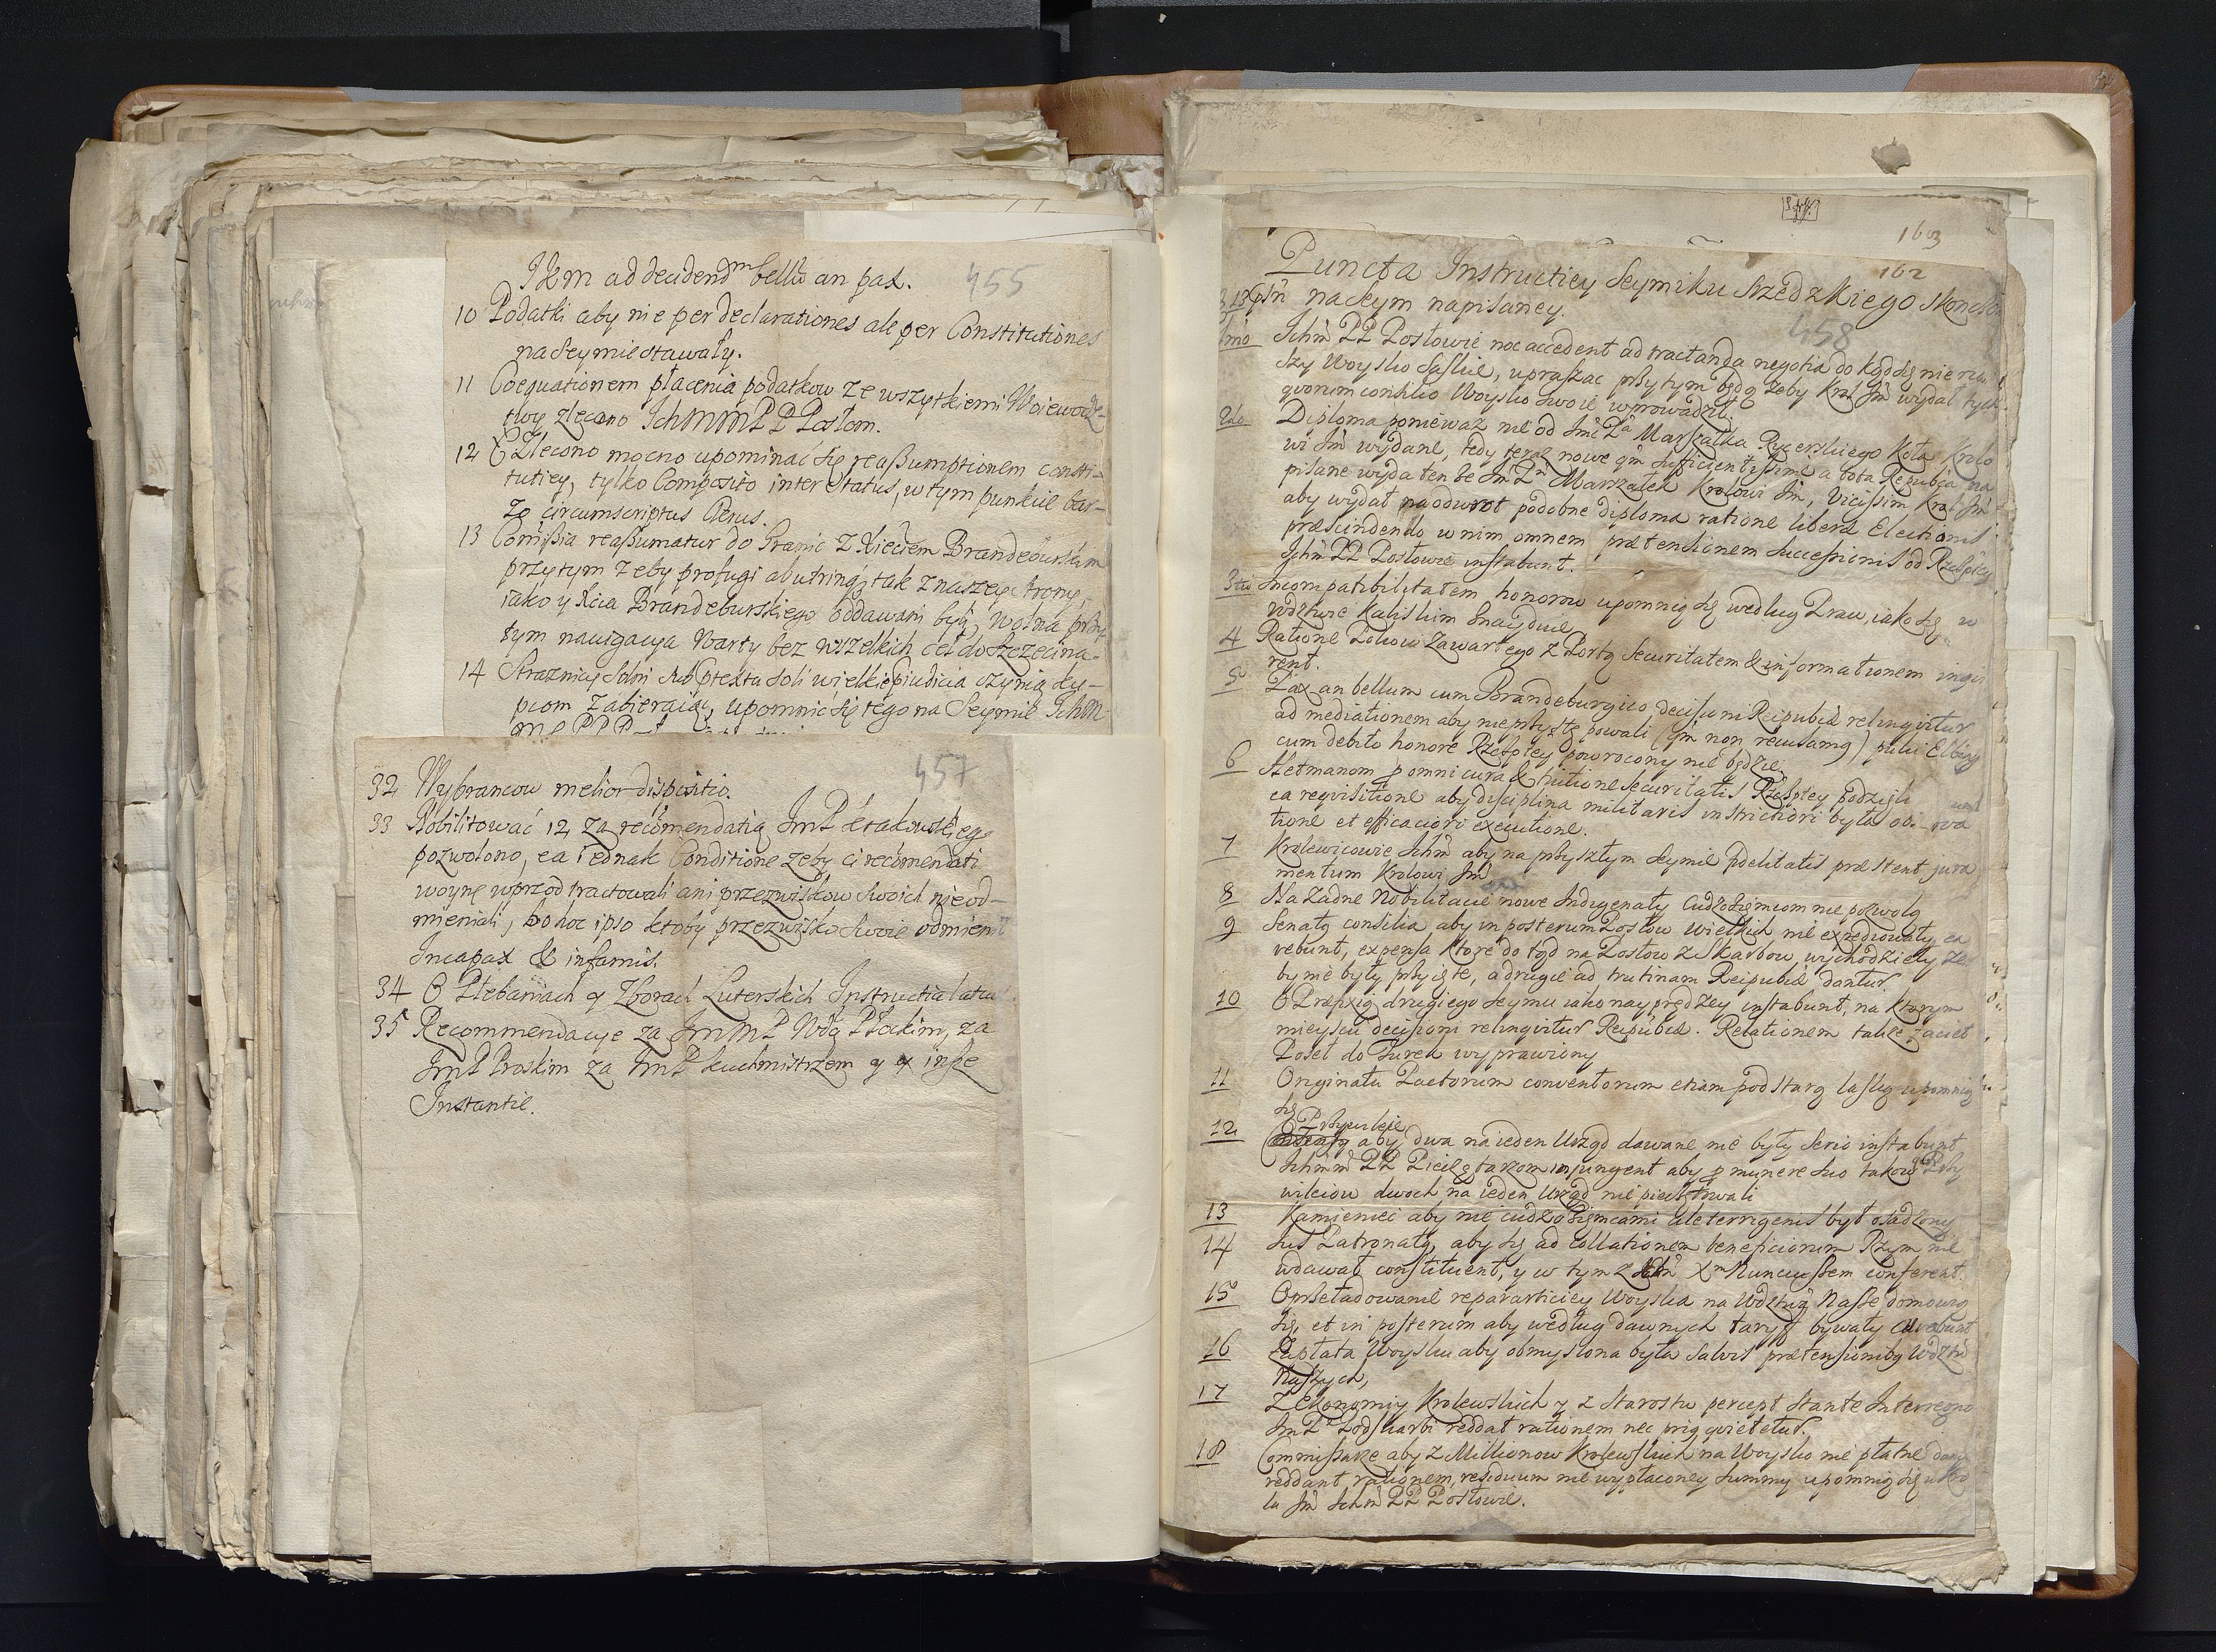 Ikm ad decidendm bellū an pax.
455
10 Podatki aby nie per declarationes ale per Constitutiones
na Seymie stawały.
11 Coequationem płacenia podatkow ze wszytkiemi Woiewodz-
twy zlecono IchMMPP Posłom.
12 Zlecono mocno upominać się reaßumptionem consti-
tutiey, tylko Composito inter Status, w tym punkcie bar-
zo circumscriptus Clerus.
13 Comißia reaßumatur do Granic z Xciem Brandeburskim
przytym zeby profugi ab utrinq, tak z naszey strony,
iako y Xcia Brandeburskiego oddawani byli, wolna przy
tym nawigacya Warty bez wszelkich ceł do Szczecina.
14 Straznicy Solni sub prtextu soli wielkie pjudicia czynią ku-
pcom zabieraiąc, upomnić się tego na Seymie IchM
457
32 Wybrancow melior dispositio.
33 Nobilitować 12 za recōmendatią JmP Krakowskiego
pozwolono, ea iednak Conditione zeby ci recōmendati
woynę wprzod tractowali ani przezwiskow swoich nie od-
mieniali, bo hoc ipso ktoby przezwisko swoie odmienił
Incapax & infamis.
34 O Plebaniach y Zborach Luterskich Instructia lata
35 Recommendacye za JmMP Wdą Płockim, za
JmP Proskim za JmP Kuchmistrzem y inße
Instantie.
1603
162
Puncta Instructiey Seymiku Srzedzkiego skonczo
na Seym napisaney.
458
1mo Ichm PP Posłowie non accedent ad tractanda negotia do kąd się nie ru
szy Woysko Saskie, upraszac przytym będą zeby Krol Jm wydał tych
quorum consilio Woysko swoie wprowadził.
2do Diploma poniewaz nie od Jmci Pa Marszałka Rycerskiego Koła Krolo
wi Jm wydane, tedy teraz nowe qm sufficientissime a tota Republca na
pisane wyda ten ze Jm Pn Marszałek Krolowi Jm, vicissim Krol Jm
aby wydał na odwrot podobne diploma ratione libera Electionis
præscindendo w nim omnem prætensionem successionis od Rzeßptey
Ichm PP Posłowie instabunt.
3tio Incompatibilitatem honorow upomnią się według Praw, iako się w
Wdztwie Kaliskim znayduie
4 Ratione Pokoiu zawartego z Portą Securitatem & informationem inqui
rent.
5 Pax an bellum cum Brandeburgico decisioni Reipublcæ relinquitur
ad mediationem aby nie przystępowali (qm non recusamq) puki Elbing
cum debito honore Rzeßptey powrocony nie będzie.
6 Hetmanom p omni cura & tuitione securitatis Rzeßptey podzięk
ea requisitione aby disciplina militaris in strictiori była obserwa
tione et efficaciori executione.
7 Krolewicowie Ichm aby na przyszłym Seymie fidelitatis præstent jura
mentum Krolowi Jm.
8 Na zadne Nobilitacie nowe Indygenaty Cudzoziemcom nie pozwolą
9 Senatq consilia aby in posterum Posłow wielkich nie expediowały ca
vebunt, expensa ktore do tąd na Posłow z Skarbow wychodzieły ze
by nie były przyięte, a drugie ad trutinam Reipublcæ dantur
10 O Præfixią drugiego Seymu iako nayprędzey instabunt, na ktorym
mieyscu decisioni relinquitur Reipublcæ. Relationem takze zaniesie
Poseł do Turek wyprawiony
11 Originału Pactorum conventorum etiam pod starą laską upomnią
się
12 Przywileie aby dwa na ieden Urząd dawane nie były serio instabunt
Ichmm PP Pieczętarzom injungent aby p munere suo takowych Przy
wileiow dwoch na ieden Urząd nie pieczętowali
13 Kamieniec aby nie cudzoziemcami ale terrigenis był osadzony
14 Jus Patronatq, aby się ad collationem beneficiorum Rzym nie
wdawał constituent, y w tym z Ichm Xm Nunciußem conferent.
15 O przeładowanie repartitiey Woyska na Wdztwa Nasze domowią
się, et in posterum aby według dawnych taryff bywały curabunt
16 Zapłata Woysku aby obmyslona była salvis prætensionibq Wdztw
Naszych,
17 Z Ekonomiy Krolewskich y z Starostw percept stante Interregno
Jm Pn Podskarbi reddat rationem nec priq quietetur.
18 Commissarze aby z Millionow Krolewskich na Woysko nie płatne dany
reddant rationem, residuum nie wypłaconey summy upomnią się u Kro
la Jm Ichm PP Posłowie.